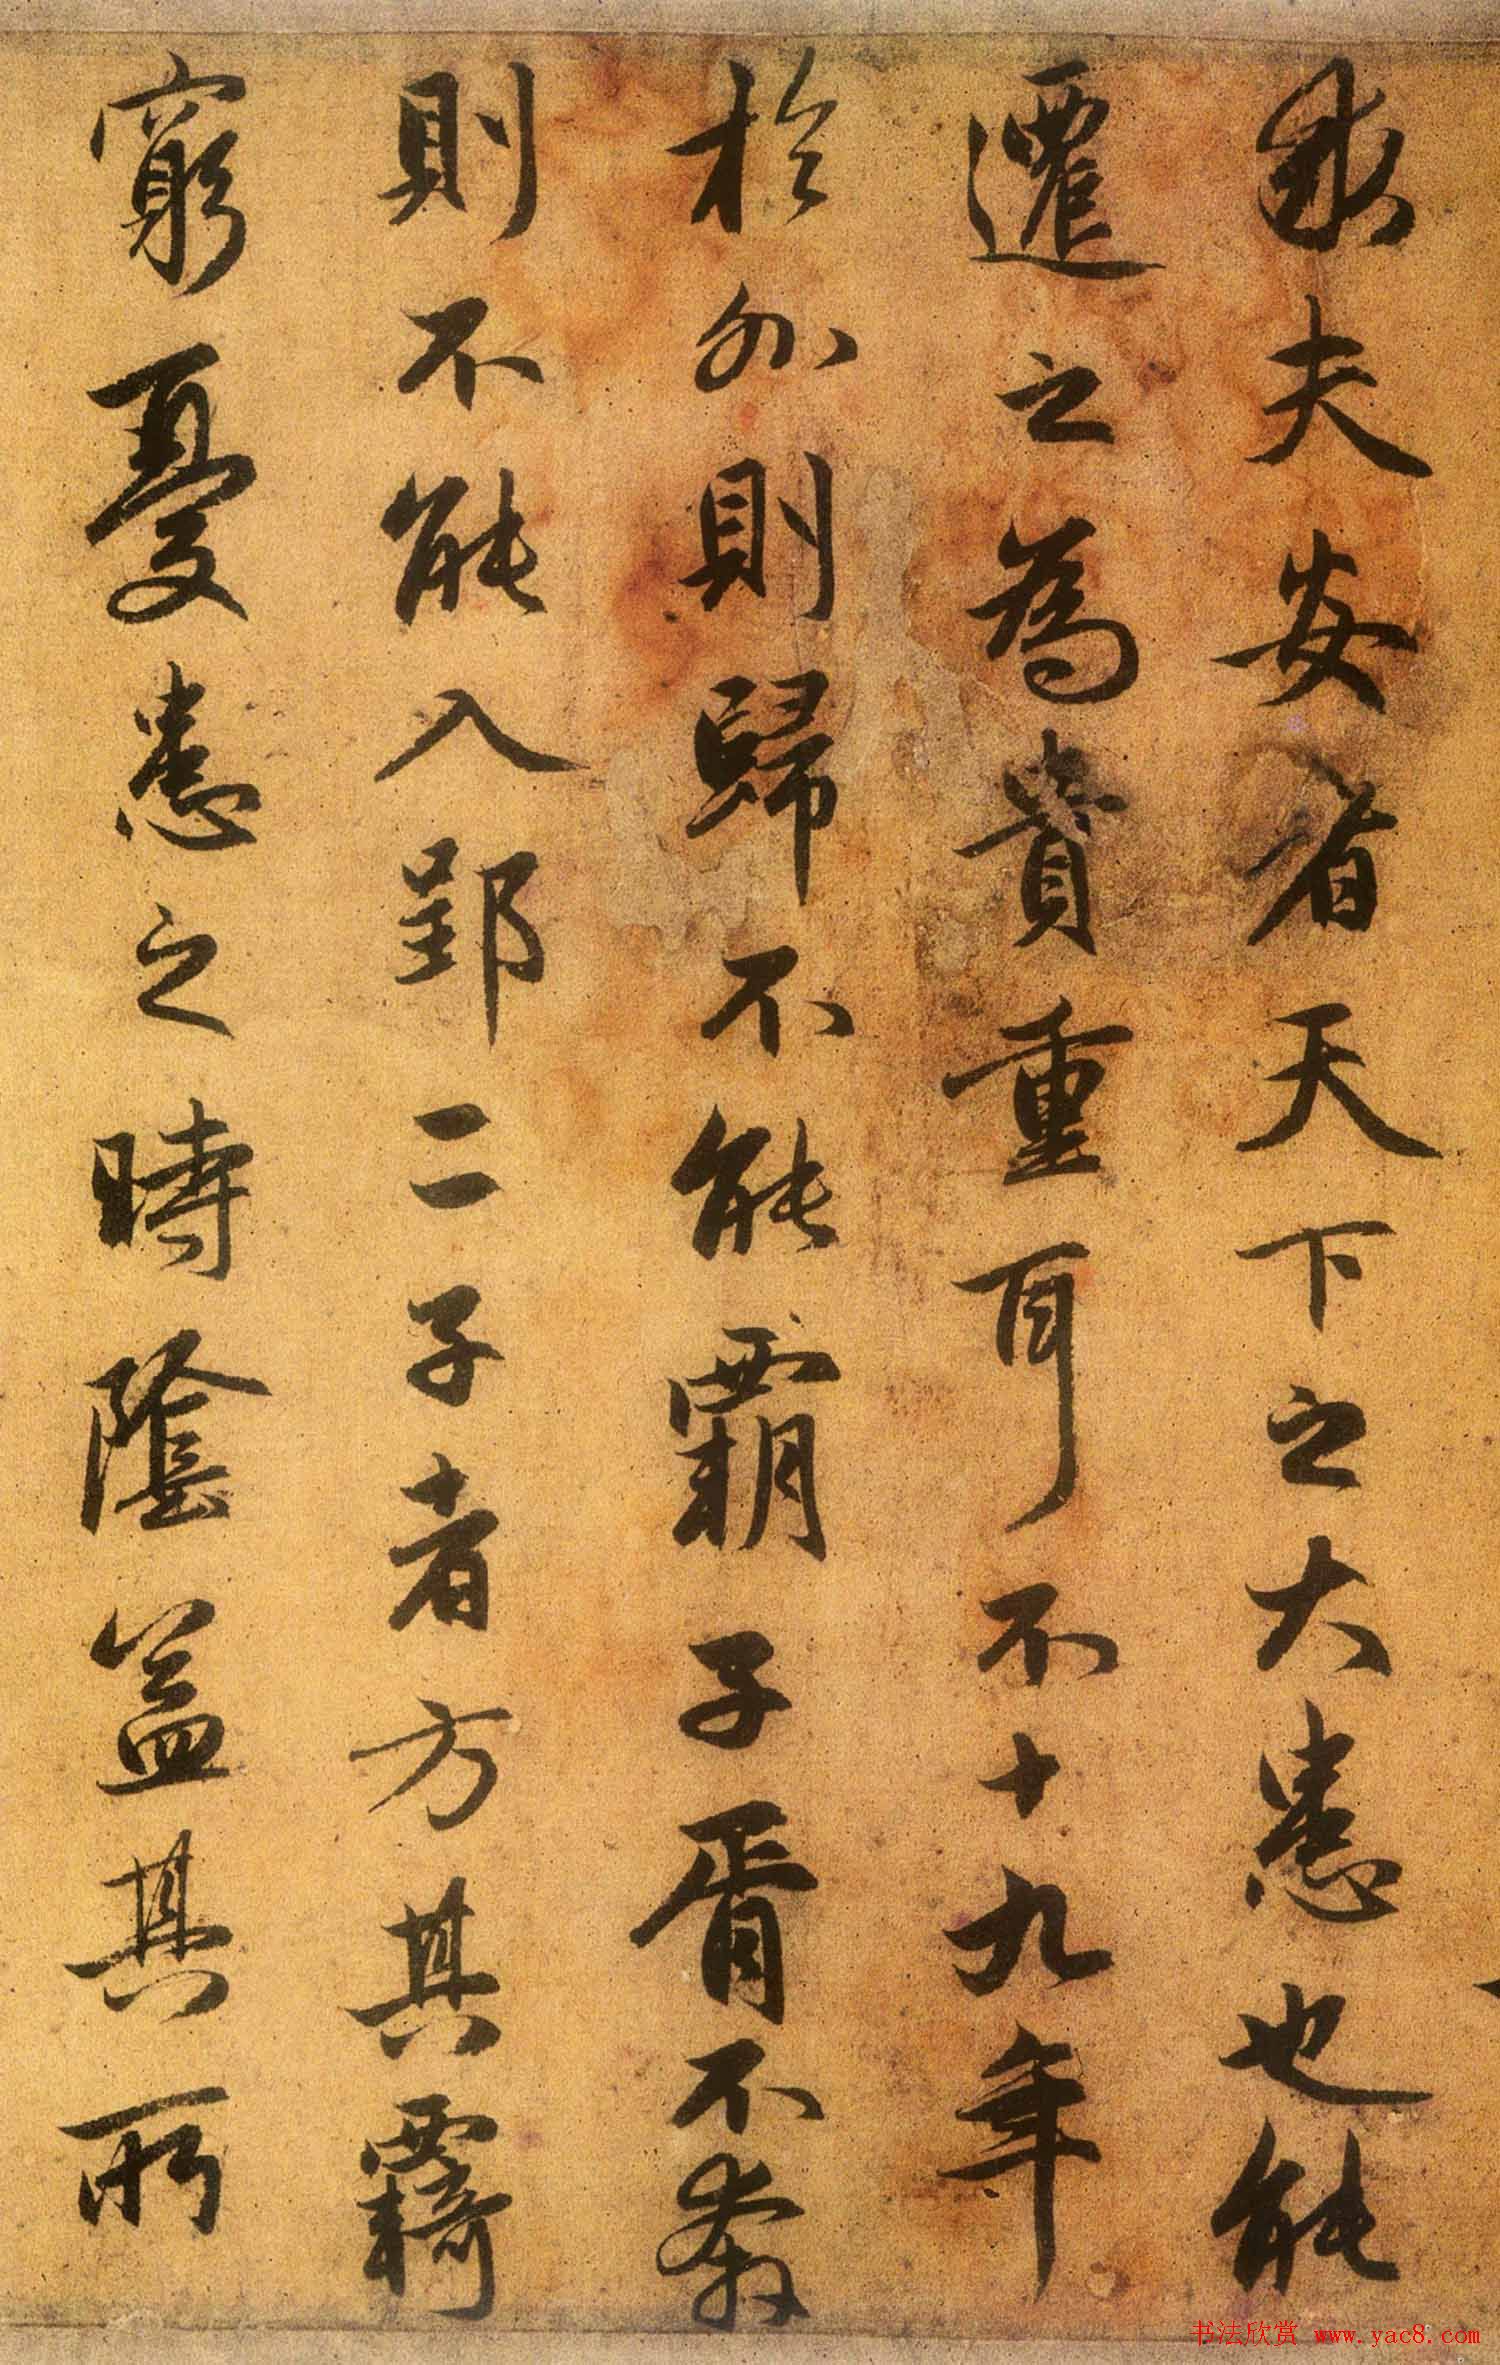 夫安者天下之大患也能
遷之為貴重耳不十九年
於外則歸不能霸子胥不奔
則不能入郢二子者方其羈
窮憂患之時陰益其所
书法欣赏 www.yac8.com